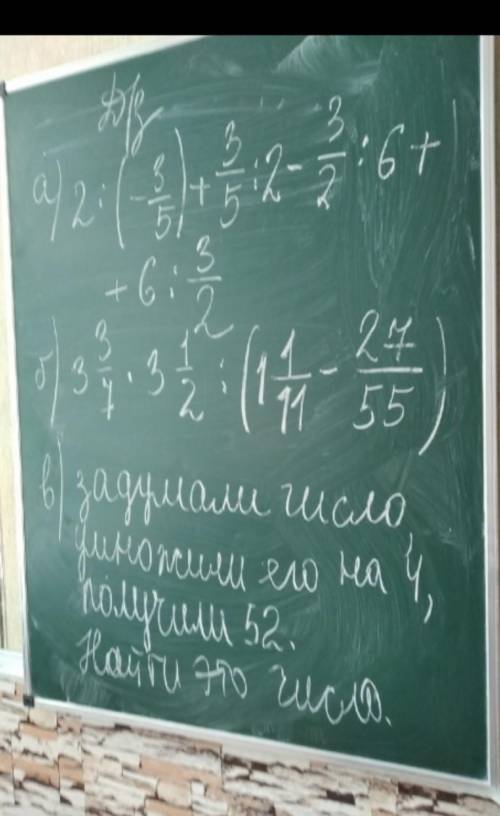 Д/з
а) 2 : (-3/5) + 3/5 : 2 - 3/2 : 6 +
+ 6 : 3/2
б) 3 3/7 · 3 1/2 : (1 1/11 - 27/55)
в) задумали число,
умножили его на 4,
получили 52.
Найти это число.